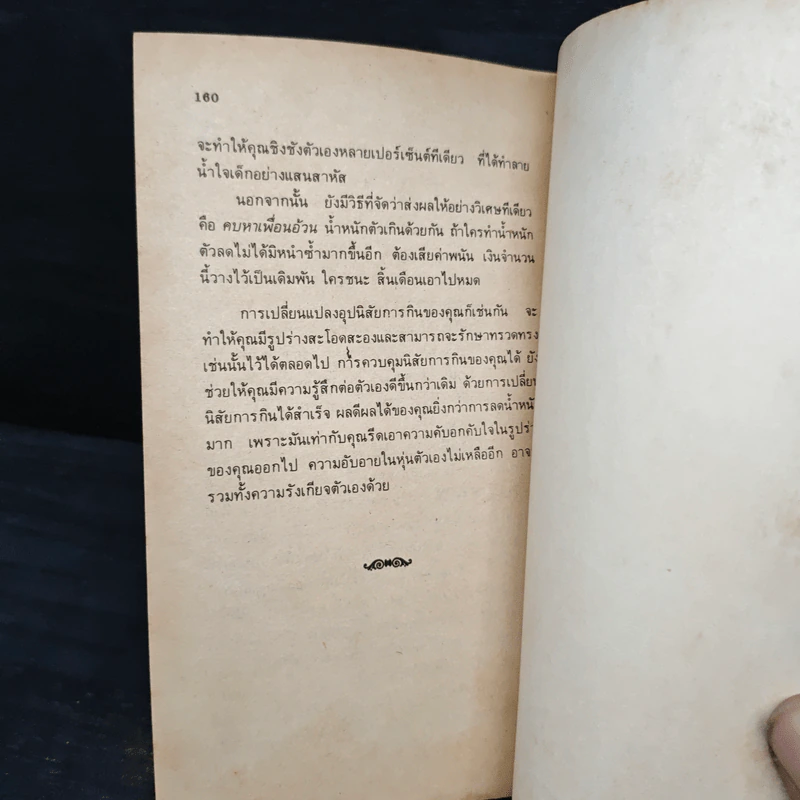 160
จะทำให้คุณชิงชังตัวเองหลายเปอร์เซ็นต์ทีเดียว ที่ได้ทำลาย
น้ำใจเด็กอย่างแสนสาหัส
นอกจากนั้น ยังมีวิธีที่จัดว่าส่งผลให้อย่างวิเศษทีเดียว
คือ คบหาเพื่อนอ้วน น้ำหนักตัวเกินด้วยกัน ถ้าใครทำน้ำหนัก
ตัวลดไม่ได้มิหนำซ้ำมากขึ้นอีก ต้องเสียค่าพนัน เงินจำนวน
นี้วางไว้เป็นเดิมพัน ใครชนะ สิ้นเดือนเอาไปหมด
การเปลี่ยนแปลงอุปนิสัยการกินของคุณก็เช่นกัน จะ
ทำให้คุณมีรูปร่างสะโอดสะองและสามารถจะรักษาทรวดทรง
เช่นนั้นไว้ได้ตลอดไป การควบคุมนิสัยการกินของคุณได้ ยัง
ช่วยให้คุณมีความรู้สึกต่อตัวเองดีขึ้นกว่าเดิม ด้วยการเปลี่ย
นิสัยการกินได้สำเร็จ ผลดีผลได้ของคุณยิ่งกว่าการลดน้ำหนั
มาก เพราะมันเท่ากับคุณรีดเอาความคับอกคับใจในรูปร่า
ของคุณออกไป ความอับอายในหุ่นตัวเองไม่เหลืออีก อาจ
รวมทั้งความรังเกียจตัวเองด้วย